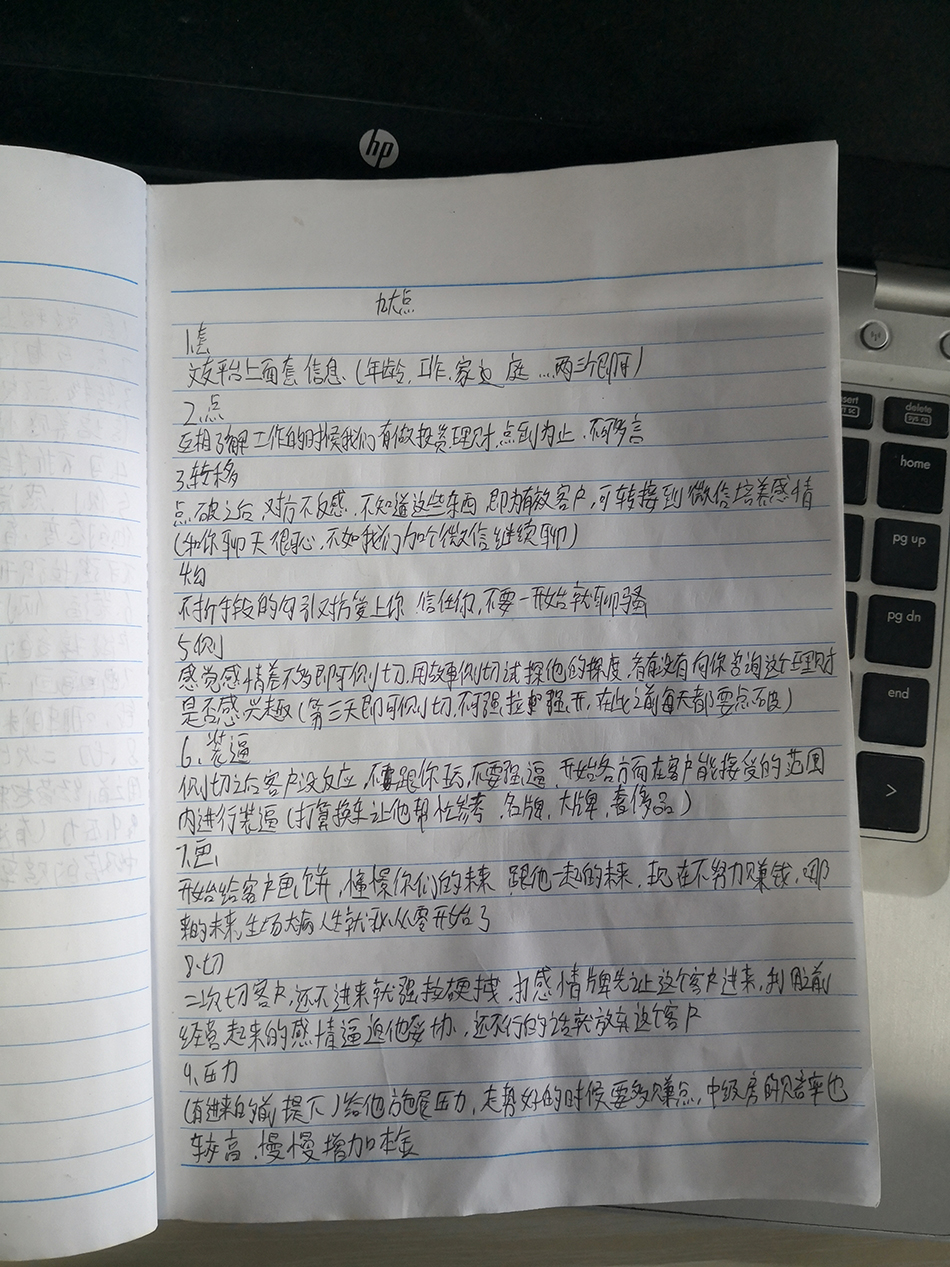 hp
九大点
1.套
交友平台上面套信息.(年龄,工作,家庭...两三个即可)
2.点
互相了解工作的时候我们有做投资理财,点到为止.不可多言
3.转移
点破之后,对方不反感.不知道这些东西,即为有效客户,可转接到微信培养感情
(和你聊天很开心,不如我们加个微信继续聊)
4.勾
不折手段的勾引对方爱上你 信任你,不要一开始就聊骚
5.侧
感觉感情差不多即可侧切.用故事侧切试探他的深度.看有没有向你咨询这个理财
是否感兴趣(第三天即可侧切,不可强拉硬,在此之前每天都要点破)
6、装逼
侧切之后客户没反应,不要跟你玩,不要强逼,开始各方面在客户能接受的范围
内进行装逼(打算换车让他帮忙参考.名牌,大牌,奢侈品)
7.画
开始给客户画饼,憧憬你们的未来 跟他一起的未来,现在不努力赚钱,哪
来的未来,生场大病人生就从零开始了
8.切
二次切客户,还不进来就强拉硬拽,打感情牌先让这个客户进来,利用之前
经营起来的感情逼迫他妥协.还不行的话就放弃这个客户
9.压力
(有进来的前提下)给他施展压力,走势好的时候要多赚点,中级房的赔率也
较高.慢慢增加本金
insert
delete
home
pg up
pg dn
end